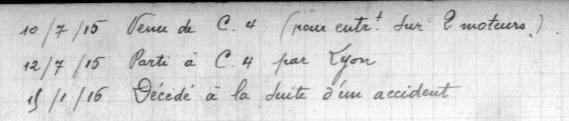 10/7/15 Venu de C. 4 (pour entr.t sur 2 moteurs.)
12/7/15 Parti à C. 4 par Lyon
15/1/16 Décédé à la suite d'un accident